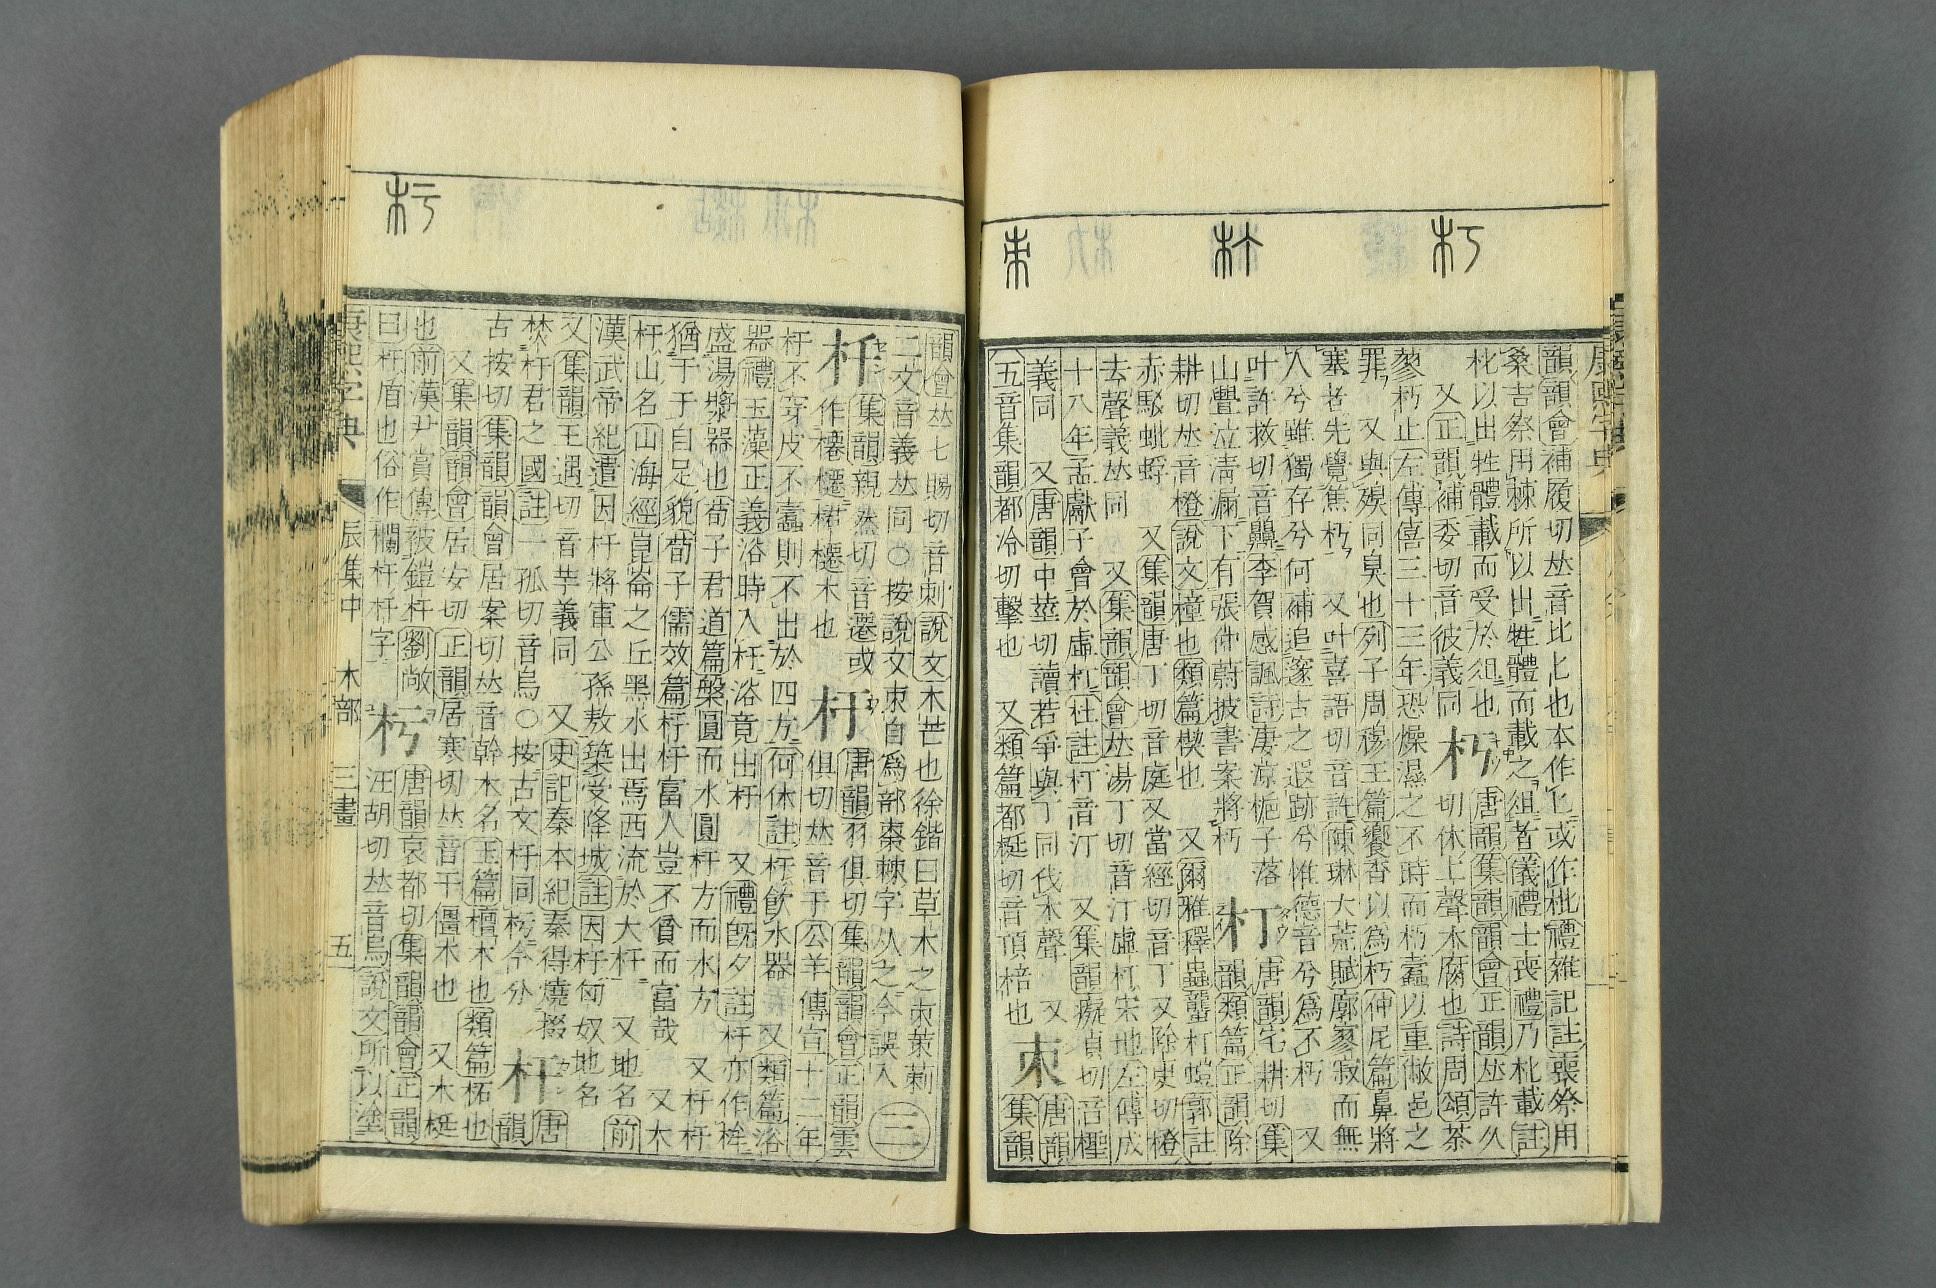 韻韻會補履切𠀤音比匕也本作匕或作枇禮雜記註喪祭用
桑吉祭用棘所以出牲體而載之俎者儀禮士喪禮乃朼載註
朼以出牲體載而受於俎也 朽 唐韻集韻韻會正韻𠀤許久
又正韻補委切音彼義同 切休上聲木腐也詩周頌荼
蓼朽止左傳僖三十三年恐燥濕之不時而朽蠹以重敝邑之
罪 又與殠同臭也列子周穆王篇饗香以爲朽仲尼篇鼻將
塞者先覺焦朽 又叶喜語切音許陳琳大荒賦廓寥寂而無
人兮雖獨存兮何補追邃古之遐跡兮惟德音兮爲不朽 又
叶許救切音齅李賀感諷詩凄凉梔子落 朾 唐韻宅耕切集
山璺泣淸漏下有張仲蔚披書案將朽 韻類篇正韻除
耕切𠀤音橙說文橦也類篇楔也 又爾雅釋蟲蠪朾螘郭註
赤駁蚍蜉 又集韻唐丁切音庭又當經切音丁又除更切橙
去聲義𠀤同 又集韻韻會𠀤湯丁切音汀虛朾宋地左傳成
十八年孟獻子會於虛朾杜註朾音汀 又集韻癡貞切音檉
義同 又唐韻中莖切讀若爭與丁同伐木聲 又唐韻
五音集韻都冷切擊也 又類篇都梃切音頂棓也 朿 集韻
韻會𠀤七賜切音刺說文木芒也徐鍇曰草木之朿茦莿
二文音義𠀤同○按說文朿自爲部棗棘字从之今誤入 三
杄 集韻親然切音遷或 杅 唐韻羽俱切集韻韻會正韻雲
作櫏櫏桾櫏木也 俱切𠀤音于公羊傳宣十二年
杅不穿皮不蠹則不出於四方何休註杅飮水器 又類篇浴
器禮玉藻正義浴時入杅浴竟出杅 又禮旣夕註杅亦作桙
盛湯漿器也荀子君道篇槃圓而水圓杅方而水方 又杅杅
猶于于自足貌荀子儒效篇杅杅富人豈不貧而富哉 又木
杅山名山海經崑崙之丘黑水出焉西流於大杅 又地名前
漢武帝紀遣因杅將軍公孫敖築受降城註因杅匈奴地名
又集韻王遇切音芋義同 又史記秦本紀秦得燒掇
焚杅君之國註一孤切音烏○按古文杅同杇今分 杆 唐韻
古按切集韻韻會居案切𠀤音幹木名玉篇檀木也類篇柘也
又集韻韻會居安切正韻居寒切𠀤音干僵木也 又木梃
也前漢尹賞傳被鎧杆劉敞 杇 唐韻哀都切集韻韻會正韻
曰杆盾也俗作欄杆杆字 汪胡切𠀤音烏說文所以塗
康熙字典 辰集中 木部 三畫 五